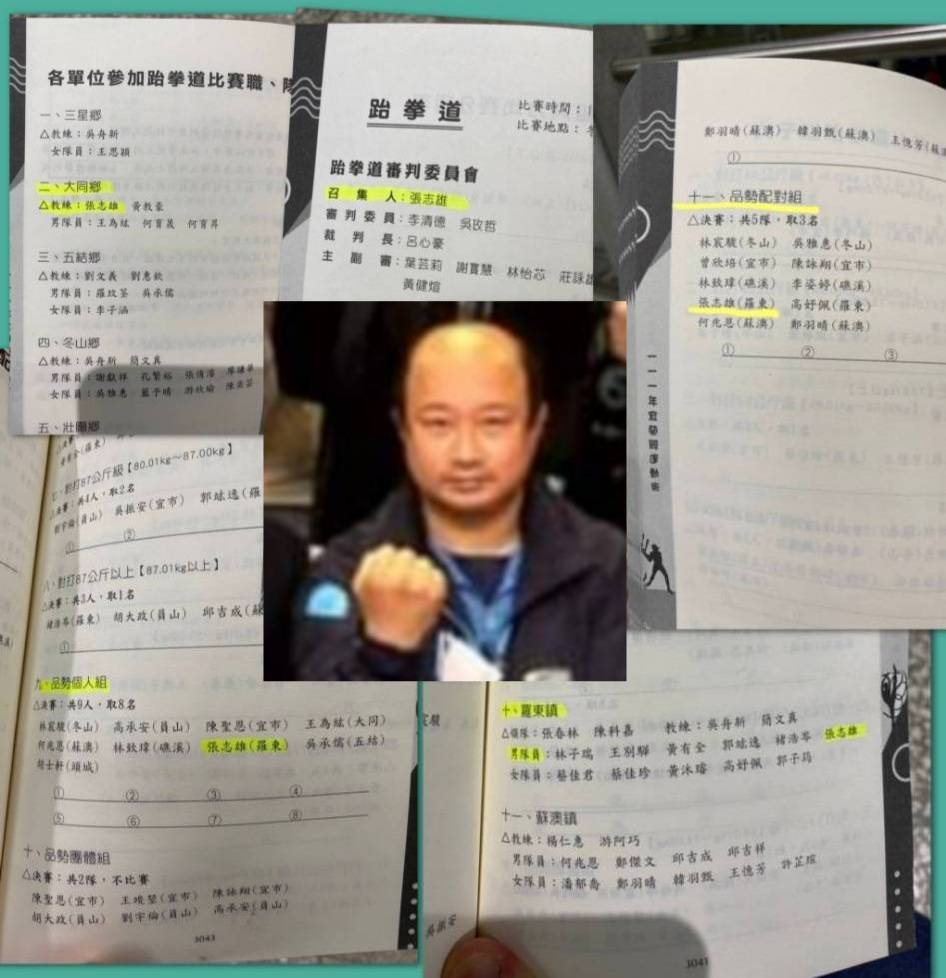 各單位參加跆拳道比賽職、隊
一、三星鄉
△教練：吳舟新
女隊員：王思穎
二、大同鄉
△教練：張志雄 黃教豪
男隊員：王為紘 何育晟 何育昇
三、五結鄉
△教練：劉文義 劉惠欽
男隊員：羅玟荃 吳承儒
女隊員：李子涵
四、冬山鄉
△教練：吳舟新 簡文真
男隊員：謝獻祥 孔繁裕
女隊員：吳雅惠 藍予晴 游欣瑜
五、壯圍鄉
跆拳道
比賽時間：
比賽地點：
跆拳道審判委員會
召集人：張志雄
審判委員：李清德 吳玫哲
裁判長：呂心豪
主副審：葉芸莉 謝寶慧 林怡芯 莊詠
黃健煊
鄭羽晴(蘇澳) 韓羽甄(蘇澳) 王憶芳(蘇澳
①
十一、品勢配對組
△決賽：共5隊，取3名
林宸駿(冬山) 吳雅惠(冬山)
曾欣培(宜市) 陳詠翔(宜市)
林敨瑋(礁溪) 李姿婷(礁溪)
張志雄(羅東) 高妤佩(羅東)
何兆恩(蘇澳) 鄭羽晴(蘇澳)
① ② ③
一一一年宜蘭縣運動會
七、對打87公斤級【80.01kg～87.00kg】
△決賽：共4人，取2名
劉宇倫(員山) 吳振安(宜市) 郭竑逸(羅
① ②
八、對打87公斤以上【87.01kg以上】
△決賽：共3人，取1名
褚浩岑(羅東) 胡大政(員山) 邱吉成(蘇
①
九、品勢個人組
△決賽：共9人，取8名
林宸駿(冬山) 高承安(員山) 陳聖恩(宜市) 王為紘(大同)
何兆恩(蘇澳) 林敨瑋(礁溪) 張志雄(羅東) 吳承儒(五結)
胡士軒(頭城)
① ② ③ ④
⑤ ⑥ ⑦ ⑧
十、品勢團體組
△決賽：共2隊，不比賽
陳聖恩(宜市) 王竣堃(宜市) 陳詠翔(宜市)
胡大政(員山) 劉宇倫(員山) 高承安(員山)
3043
十、羅東鎮
△領隊：張春林 陳科嘉 教練：吳舟新 簡文真
男隊員：林子瑞 王別驊 黃有全 郭竑逸 褚浩岑 張志雄
女隊員：蔡佳君 蔡佳珍 黃沐璿 高妤佩 郭子筠
十一、蘇澳鎮
△教練：楊仁惠 游阿巧
男隊員：何兆恩 鄭傑文 邱吉成 邱吉祥
女隊員：潘郁喬 鄭羽晴 韓羽甄 王憶芳 許芷瑄
3041